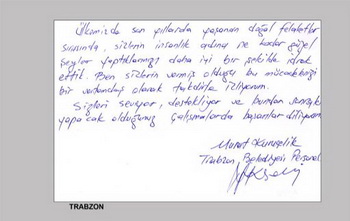 Ülkemizde son yıllarda yaşanan doğal felaketler
sırasında, sizlerin insanlık adına ne kadar güzel
şeyler yaptığınızı daha iyi bir şekilde idrak
ettik. Ben sizlerin vermiş olduğu bu mücadeleyi
bir vatandaş olarak takdirle izliyorum.
Sizleri seviyor, destekliyor ve bundan sonra
yapacak olduğunuz çalışmalarda başarılar diliyorum
Murat
Trabzon Belediyesi Personeli
TRABZON